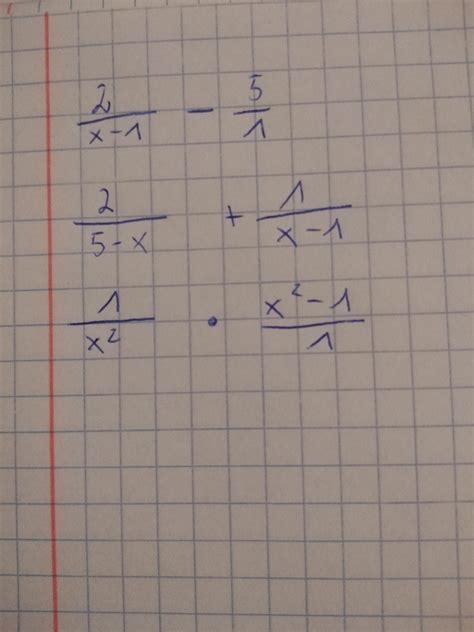 2/(x-1) - 5/1
2/(5-x) + 1/(x-1)
1/x² · (x²-1)/1